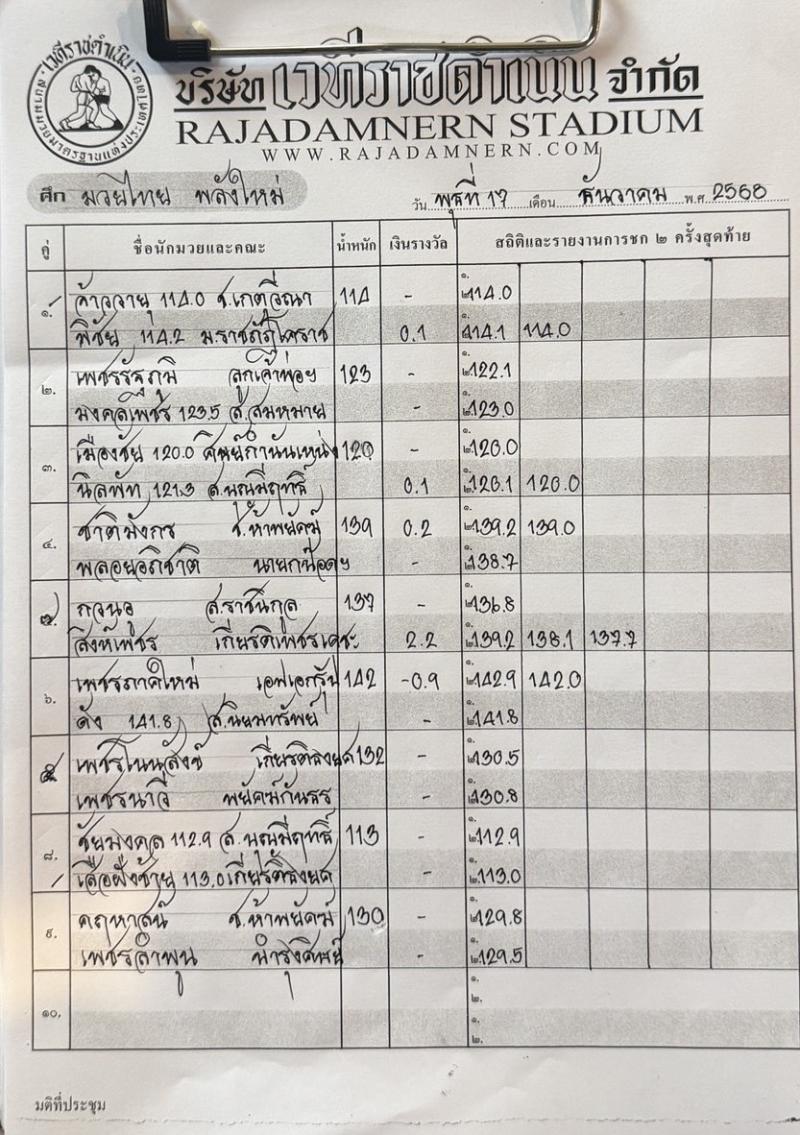 เวทีราชดำเนิน
บริษัท เวทีราชดำเนิน จำกัด
RAJADAMNERN STADIUM
WWW.RAJADAMNERN.COM
ศึก มวยไทย พลังใหม่ วัน พุธที่ 17 เดือน ธันวาคม พ.ศ. 2568
คู่ ชื่อนักมวยและคณะ น้ำหนัก เงินรางวัล สถิติและรายงานการชก ๒ ครั้งสุดท้าย
๑. จ้าววายุ 114.0 ช.เกตุวีณา 114 - ๑. ๒. 114.0
พิชัย 114.2 ม.ราชภัฏโคราช 0.1 ๑. ๒. 114.1 114.0
๒. เพชรรัฐภูมิ ลูกเจ้าพ่อฯ 123 - ๑. ๒. 122.1
มงคลเพชร 123.5 ส.สมหมาย - ๑. ๒. 123.0
๓. เมืองชัย 120.0 ศิษย์กำนันเหน่ง 120 - ๑. ๒. 120.0
นิลพัท 121.3 ส.บุญมีฤทธิ์ 0.1 ๑. ๒. 120.1 120.0
๔. ชาติมังกร ช.ห้าพยัคฆ์ 139 0.2 ๑. ๒. 139.2 139.0
พลอยอภิชาติ นายกน๊อตฯ - ๑. ๒. 138.7
กวนอู ส.ราชนิกูล 137 - ๑. ๒. 136.8
สิงห์เพชร เกียรติเพชรเดชะ 2.2 ๑. ๒. 139.2 138.1 137.7
๖. เพชรภาคใหม่ เอฟเอกรุ๊ป 142 -0.9 ๑. ๒. 142.9 142.0
ดัง 141.8 ส.นิยมทรัพย์ - ๑. ๒. 141.8
เกียรติธงยศ 132 - ๑. ๒. 130.5
เพชรนาวี พยัคฆ์กันธร - ๑. ๒. 130.8
๘. ชัยมงคล 112.9 ส.บุญมีฤทธิ์ 113 - ๑. ๒. 112.9
เสือฝั่งซ้าย 113.0 เกียรติธงยศ - ๑. ๒. 113.0
๙. คฤหาสน์ ช.ห้าพยัคฆ์ 130 - ๑. ๒. 129.8
เพชรลำพูน บำรุงศิษย์ - ๑. ๒. 129.5
๑๐. ๑.
๒.
๑.
๒.
มติที่ประชุม